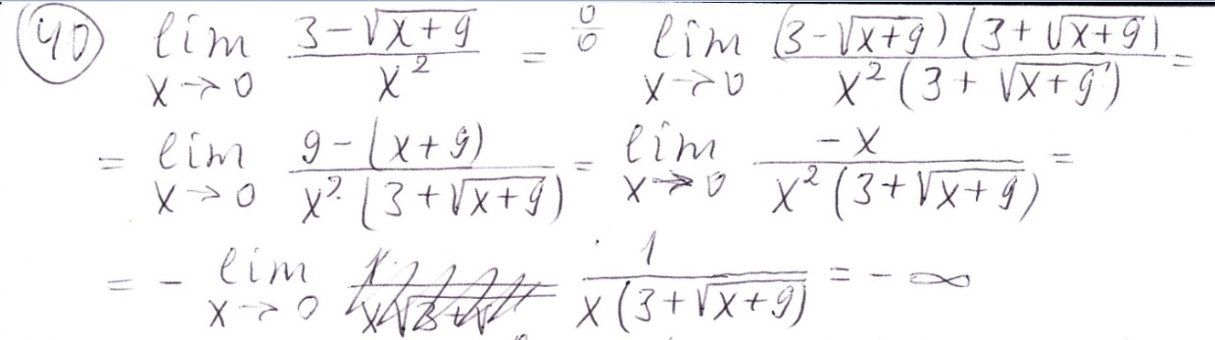 40 lim x→0 (3-√(x+9))/x² = 0/0 lim x→0 ((3-√(x+9))(3+√(x+9)))/(x²(3+√(x+9))) =
= lim x→0 (9-(x+9))/(x²(3+√(x+9))) = lim x→0 (-x)/(x²(3+√(x+9))) =
= - lim x→0 1/(x(3+√(x+9))) = -∞